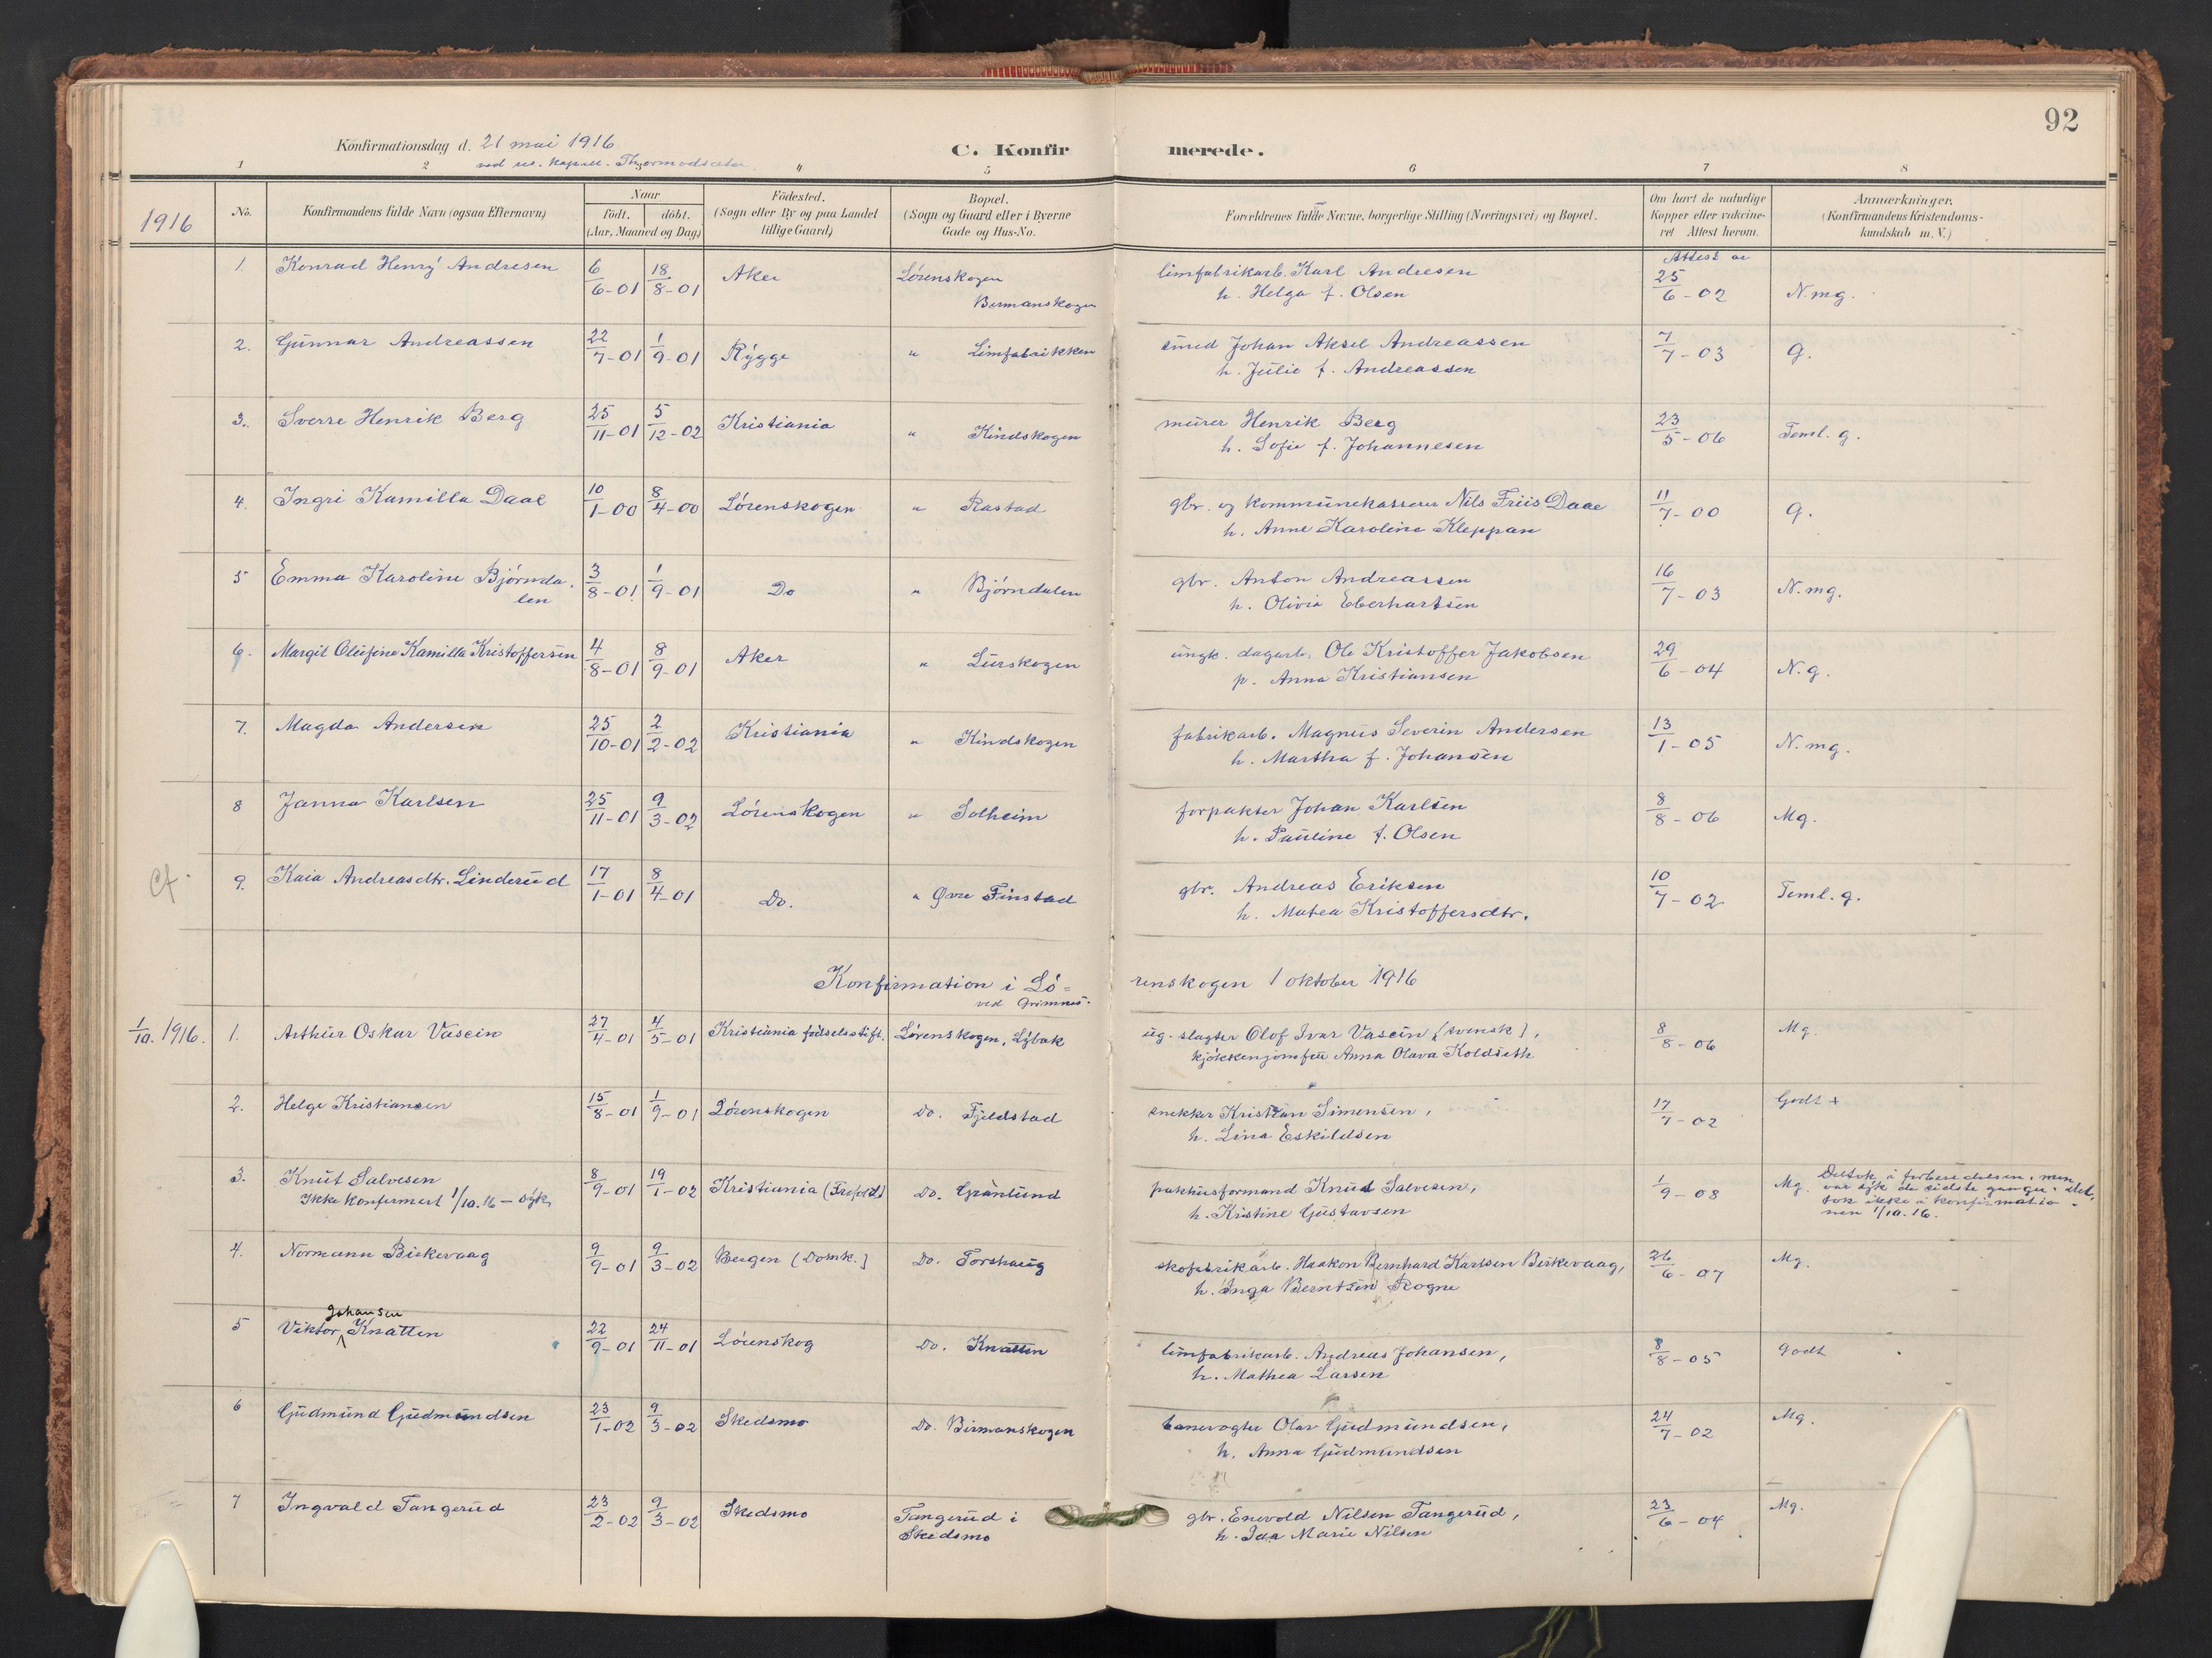 92
Konfirmationsdag d. 21 mai 1916
C. Konfir merede.
ved res. kapell. Thormodsæter
1 2 4 5 6 7 8
1916
No.
Konfirmandens fulde Navn (ogsaa Efternavn)
Naar
født. døbt.
(Aar, Maaned og Dag)
Fødested.
(Sogn eller By og paa Landet
tillige Gaard)
Bopæl.
(Sogn og Gaard eller i Byerne
Gade og Hus-No.
Forældrenes fulde Navne, borgerlige Stilling (Næringsvei) og Bopæl.
Om havt de naturlige
Kopper eller vakcine-
ret Attest herom.
Anmærkninger.
(Konfirmandens Kristendoms-
kundskab m. V.)
Attest av
1. Konrad Henry Andresen 6/6-01 18/8-01 Aker Lørenskogen limfabrikarb. Karl Andresen 25/6-02 N. mg.
Bermanskogen h. Helga f. Olsen
2. Gunnar Andreassen 22/7-01 1/9-01 Rygge " Limfabrikken smed Johan Aksel Andreassen 7/7-03 g.
h. Julie f. Andreassen
3. Sverre Henrik Berg 25/11-01 5/12-02 Kristiania " Kindskogen murer Henrik Berg 23/5-06 Teml. g.
h. Sofie f. Johannesen
4. Ingri Kamilla Daae 10/1-00 8/4-00 Lørenskogen " Rastad gbr. og kommunekasserer Nils Friis Daae 11/7-00 g.
h. Anne Karoline Kleppan
5 Emma Karoline Bjørnda- 3/8-01 1/9-01 Do " Bjørndalen gbr. Anton Andreassen 16/7-03 N. mg.
len h. Olivia Eberhartsen
6. Margit Olufine Kamilla Kristoffersen 4/8-01 8/9-01 Aker " Lurskogen ungk. dagarb. Ole Kristoffer Jakobsen 29/6-04 N. g.
p. Anna Kristiansen
7. Magda Andersen 25/10-01 2/2-02 Kristiania " Kindskogen fabrikarb. Magnus Severin Andersen 13/1-05 N. mg.
h. Martha f. Johansen
8 Janna Karlsen 25/11-01 9/3-02 Lørenskogen " Solheim forpakter Johan Karlsen 8/8-06 Mg.
h. Pauline f. Olsen
9. Kaia Andreasdtr. Linderud 17/1-01 8/4-01 Do. " Øvre Finstad gbr. Andreas Eriksen 10/7-02 Teml. g.
h. Matea Kristoffersdtr.
Konfirmation i Lø= renskogen 1 oktober 1916
ved Grimnes.
1/10. 1916. 1. Arthur Oskar Vasein 27/4-01 4/5-01 Kristiania fødselsstift. Lørenskogen, Lybak ug. slagter Olof Ivar Vasein (svensk), 8/8-06 Mg.
kjøkkenjomfru Anna Olava Koldseth
2. Helge Kristiansen 15/8-01 1/9-01 Lørenskogen Do. Fjeldstad snekker Kristian Simensen, 17/7-02 Godt +
h. Lina Eskildsen
3. Knut Salvesen 8/9-01 19/1-02 Kristiania Do. Grønlund pakhusformand Knud Salvesen, 1/9-08 Mg. Deltok i forberedelsen, men
Ikke konfirmert 1/10.16 – syk h. Kristine Gustavsen var syk de sidste gange. Del,
tok ikke i konfirmatio-
nen 1/10.16.
4. Normann Birkevaag 9/9-01 9/3-02 Bergen (Domk.) Do. Torshaug skofabrikarb. Haakon Bernhard Karlsen Birkevaag, 26/6-07 Mg.
h. Inga Berntsen Rogne
Johansen
5 Viktor Knatten 22/9-01 24/11-01 Lørenskog Do. Knatten limfabrikarb. Andreas Johansen, 8/8-05 Godt
h. Mathea Larsen
6 Gudmund Gudmundsen 23/1-02 9/3-02 Skedsmo Do. Birmanskogen banevogter Olav Gudmundsen, 24/7-02 Mg.
h. Anna Gudmundsen
7 Ingvald Tangerud 23/2-02 9/3-02 Skedsmo Tangerud i gbr. Enevold Nilsen Tangerud, 23/6-04 Mg.
Skedsmo h. Ida Marie Nilsen